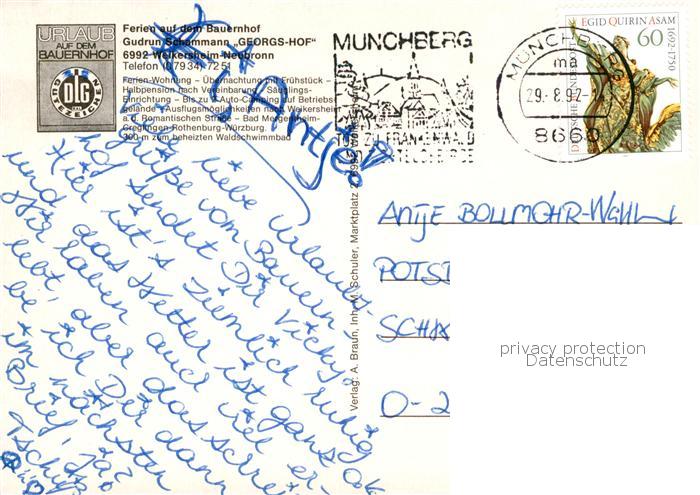 URLAUB
AUF DEM
BAUERNHOF
DLG
GÜTEZEICHEN
Ferien auf dem Bauernhof
Gudrun Schammann „GEORGS-HOF“
6992 Weikersheim-Neubronn
Telefon (07934) 7251
Ferien-Wohnung – Übernachtung mit Frühstück –
Halbpension nach Vereinbarung – Säuglings-
Einrichtung – Bis zu Auto-Camping auf Betriebs-
gelände – Ausflugsmöglichkeiten nach Weikersheim
a.d. Romantischen Straße – Bad Mergentheim-
Creglingen-Rothenburg-Würzburg.
300 m zum beheizten Waldschwimmbad
Antje!
liebe Urlaubs-
grüße vom Bauern-
hof sendet Dir Vicky.
Hier ist's ziemlich ruhig
und das Wetter ist ganz ok.
Wir haben auch viel er-
lebt, aber das schrei-
be ich Dir dann
im nächsten
Brief, ja?
Tschüß
Verlag: A. Braun, Inh. M. Schuler, Marktplatz 2, 6992 Weikersheim
MÜNCHBERG
TOR ZU FRANKENWALD
MÜNCHBERG
ma
29.-8.92-
8660
EGID QUIRIN ASAM
1692-1750
60
DEUTSCHE BUNDESPOST
ANTJE BOLLMOHR-WAHL
POTST
SCHW
O-2
privacy protection
Datenschutz